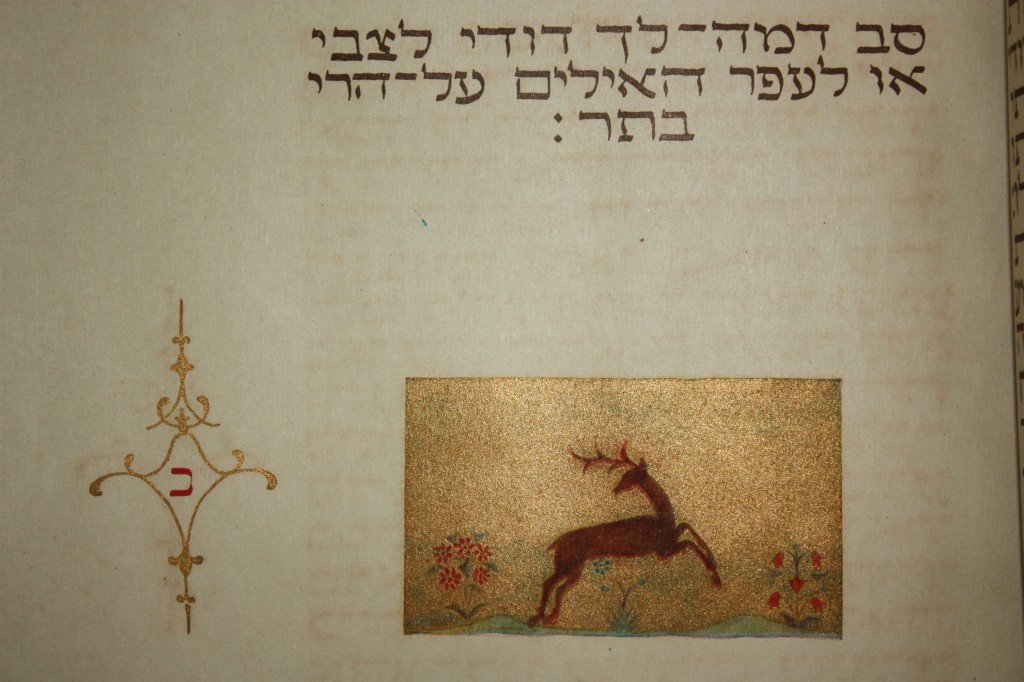 סב דמה־לך דודי לצבי
או לעפר האילים על־הרי
בתר :
כ